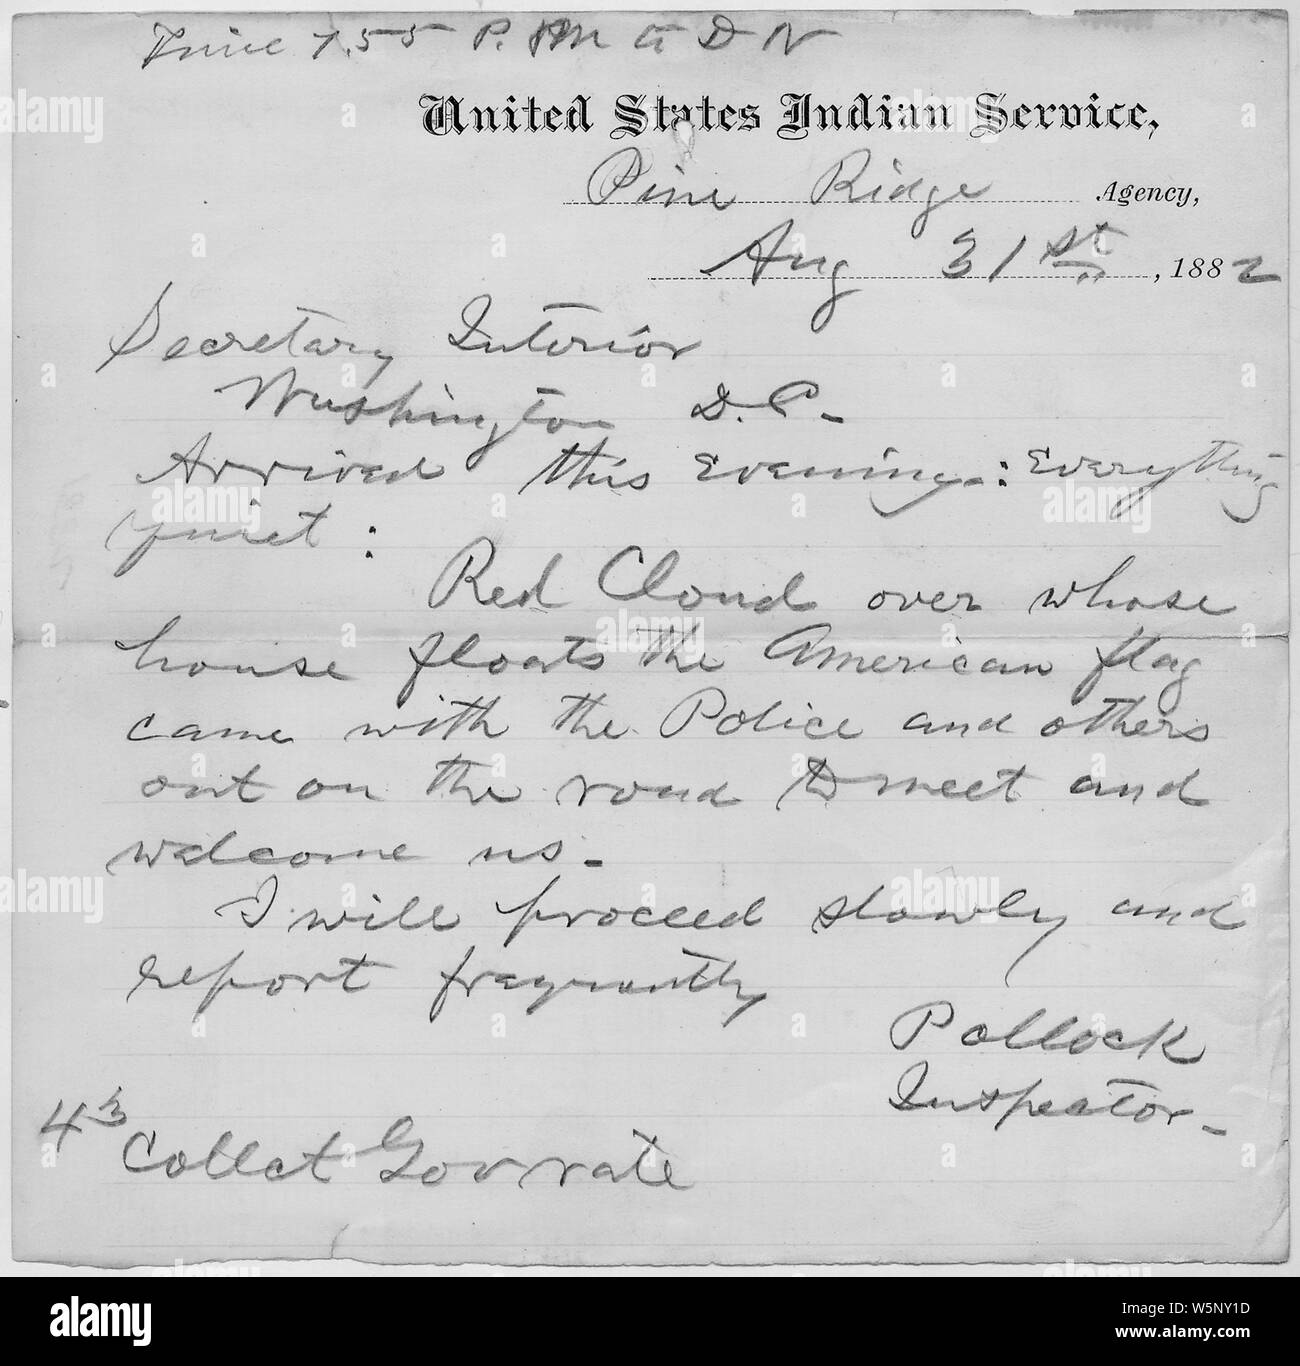 Time 7.55 P.M. to D N
United States Indian Service,
Pine Ridge Agency,
Aug 31st, 1882
Secretary Interior
Washington D.C.
Arrived this Evening: Everything
quiet:
Red Cloud over whose
house floats the American flag
came with the Police and others
out on the road to meet and
welcome us.
I will proceed slowly and
report frequently
Pollock
Inspector
43
Collect Gov rate
alamy
Image ID: W5NY1D
www.alamy.com